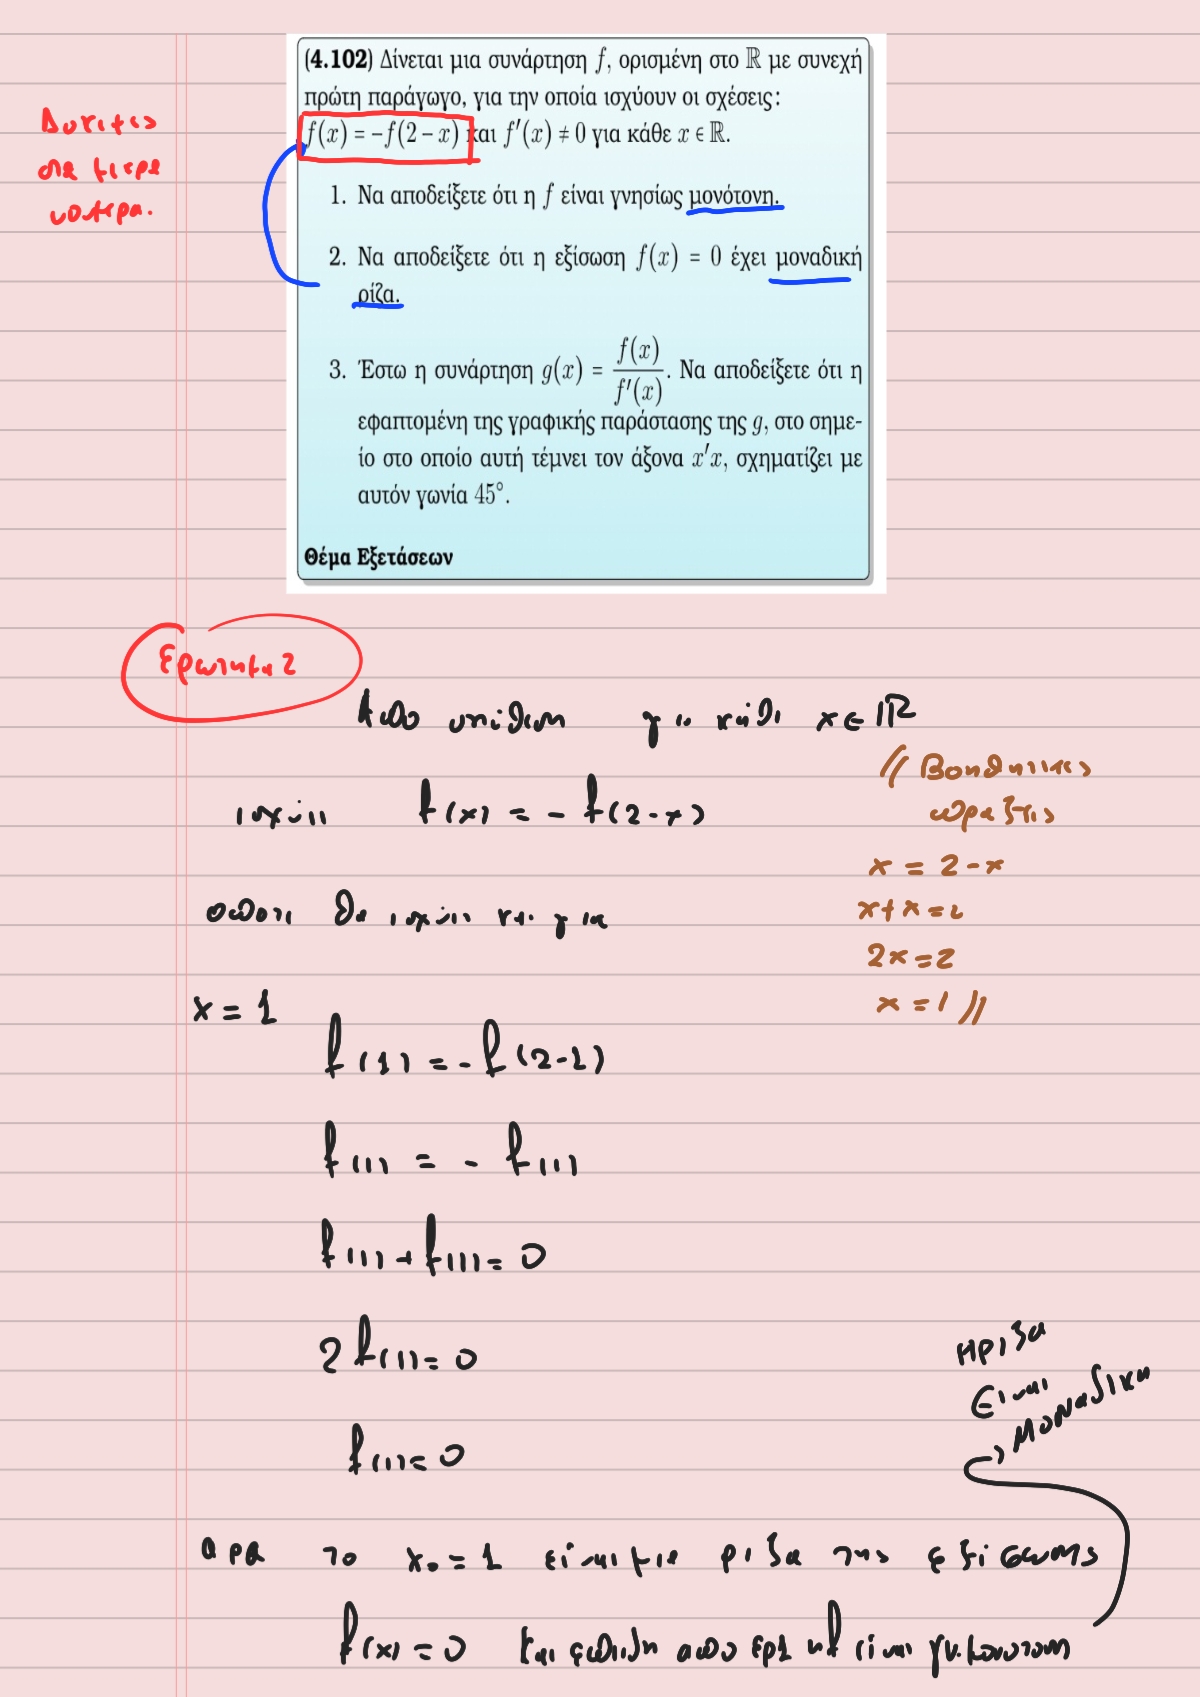 (4.102) Δίνεται μια συνάρτηση f, ορισμένη στο ℝ με συνεχή
πρώτη παράγωγο, για την οποία ισχύουν οι σχέσεις:
f(x) = −f(2 − x) και f′(x) ≠ 0 για κάθε x ∈ ℝ.
1. Να αποδείξετε ότι η f είναι γνησίως μονότονη.
2. Να αποδείξετε ότι η εξίσωση f(x) = 0 έχει μοναδική
ρίζα.
3. Έστω η συνάρτηση g(x) = f(x)/f′(x). Να αποδείξετε ότι η
εφαπτομένη της γραφικής παράστασης της g, στο σημε-
ίο στο οποίο αυτή τέμνει τον άξονα x′x, σχηματίζει με
αυτόν γωνία 45°.
Θέμα Εξετάσεων
υστερα.
Ερωτημα 2
Απο υπόθεση για κάθε x ∈ ℝ
ισχύει f(x) = - f(2-x)
οποτε θα ισχύει και για
x = 1
f(1) = - f(2-1)
f(1) = - f(1)
f(1) + f(1) = 0
2f(1) = 0
f(1) = 0
αρα το x₀ = 1 είναι μια ριζα της εξίσωσης
f(x) = 0 και επειδη απο ερ1 η f είναι γν. μονοτονη
η ριζα
ειναι
μοναδικη
// Βοηθητικες
πραξεις
x = 2 - x
x + x = 2
2x = 2
x = 1 //